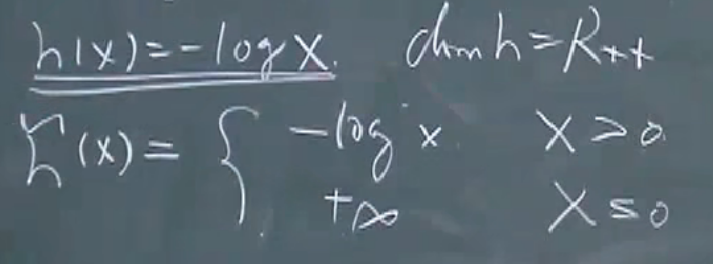 h(x)=-log x. dom h=R₊₊
h̃(x)= { -log x x>0
+∞ x≤0